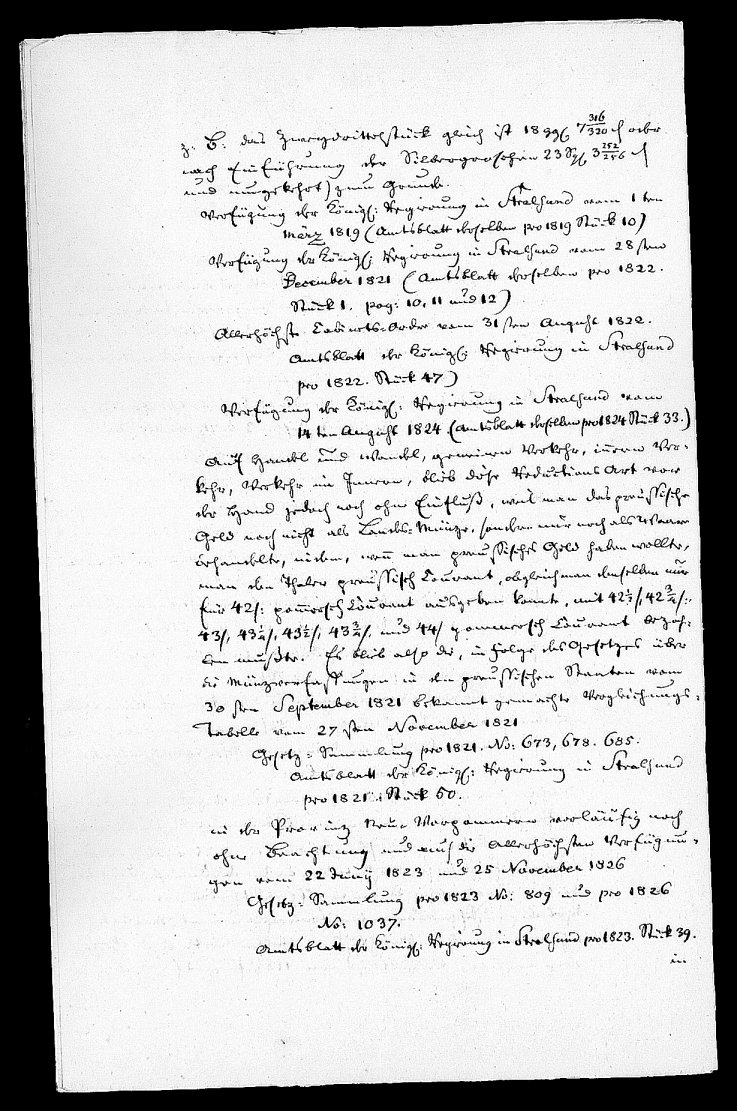 z. B. das Zweydrittelstück gleich ist 18 ggl 7 316/320 d oder
nach Einführung der Silbergroschen 23 Sgl 3 252/256 d
und umgekehrt) zum Grunde.
Verfügung der Königl: Regierung in Stralsund vom 1 ten
März 1819 (Amtsblatt derselben pro 1819 Stück 10)
Verfügung der Königl: Regierung in Stralsund vom 28 sten
December 1821 (Amtsblatt derselben pro 1822.
Stück 1. pag: 10, 11 und 12)
Allerhöchste Cabinets-Order vom 31 sten August 1822.
Amtsblatt der Königl: Regierung in Stralsund
pro 1822. Stück 47)
Verfügung der Königl: Regierung in Stralsund vom
14 ten August 1824 (Amtsblatt derselben pro 1824 Stück 33.)
Auf Handel und Wandel, gemeinen Verkehr, innern Ver-
kehr, Verkehr im Innern, blieb diese Reductions Art vor
der Hand jedoch noch ohne Einfluß, weil man das preußische
Geld noch nicht als Landes-Münze, sondern nur noch als Waare
behandelte, indem, wenn man preußisches Geld haben wollte,
man den Thaler preußisch Courant, obgleich man denselben nur
für 42 ß: pommersch Courant ausgeben konnte, mit 42 1/2 ß, 42 3/4 ß:,
43 ß, 43 1/4 ß, 43 1/2 ß, 43 3/4 ß, und 44 ß pommersch Courant bezah-
len mußte. Es blieb also die, in Folge des Gesetzes über
die Münzverfassungen in den preußischen Staaten vom
30 sten September 1821 bekannt gemachte Vergleichungs-
Tabelle vom 27 sten November 1821
Gesetz-Sammlung pro 1821. No: 673, 678. 685.
Amtsblatt der Königl: Regierung in Stralsund
pro 1821. Stück 50.
in der Provinz Neu-Vorpommern vorläufig noch
ohne Beachtung und auch die Allerhöchsten Verfügun-
gen vom 22 Juny 1823 und 25 November 1826
Gesetz-Sammlung pro 1823 No: 809 und pro 1826
No: 1037.
Amtsblatt der Königl: Regierung in Stralsund pro 1823. Stück 39.
in